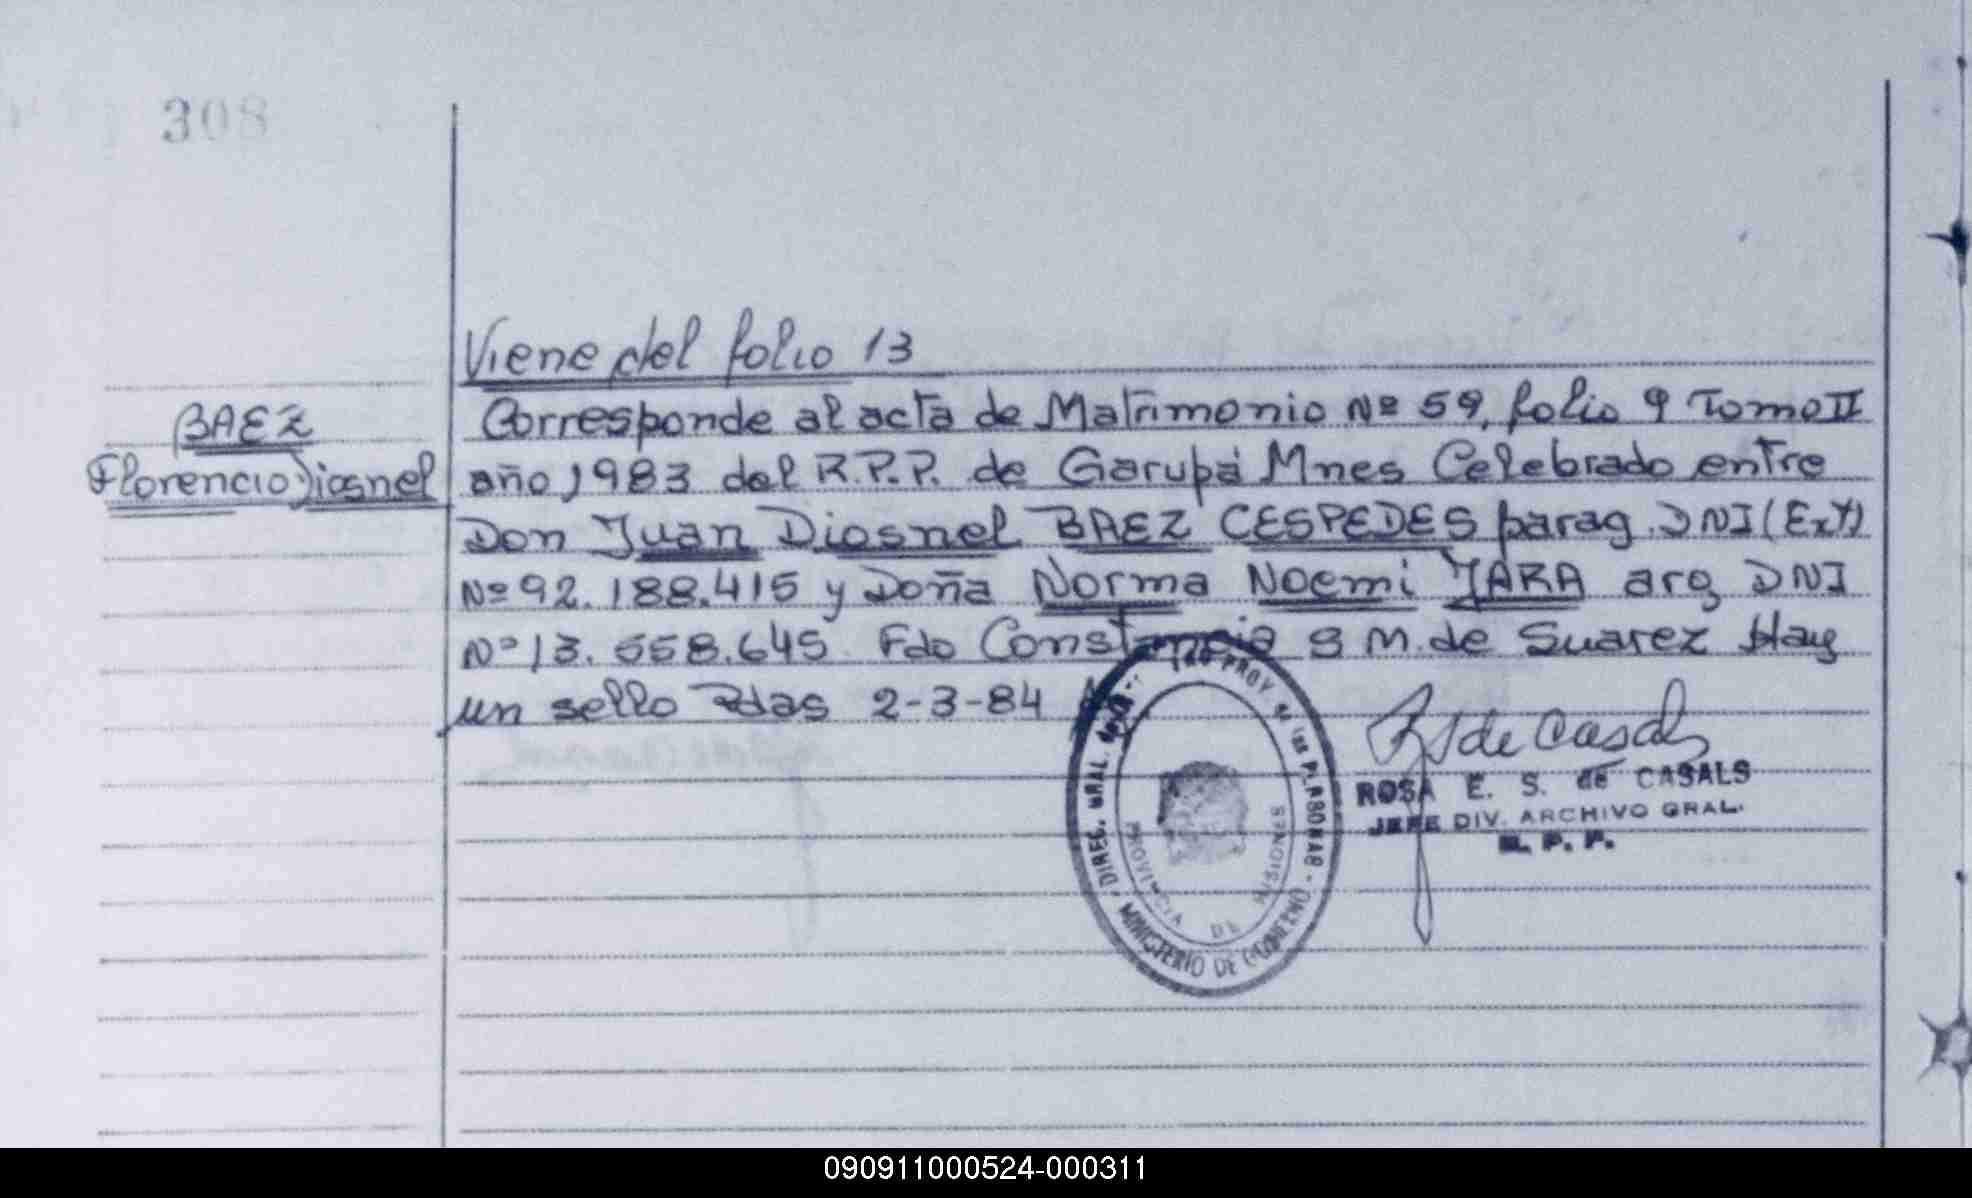 308
Viene del folio 13
BAEZ
Florencio Diosnel
Corresponde al acta de Matrimonio Nº 59, folio 9 Tomo II
año 1983 del R.P.P. de Garupá Mnes Celebrado entre
Don Juan Diosnel BAEZ CESPEDES parag. DNI (Ext)
Nº 92.188.415 y Doña Norma Noemi JARA arg DNI
Nº 13.558.645 Fdo Constancia S M. de Suarez Hay
un sello Pdas 2-3-84
de Casals
ROSA E. S. de CASALS
JEFE DIV. ARCHIVO GRAL.
R. P. P.
DIREC. GRAL. PROV. de las PERSONAS - MINISTERIO DE GOBIERNO
PROVINCIA DE MISIONES
090911000524-000311